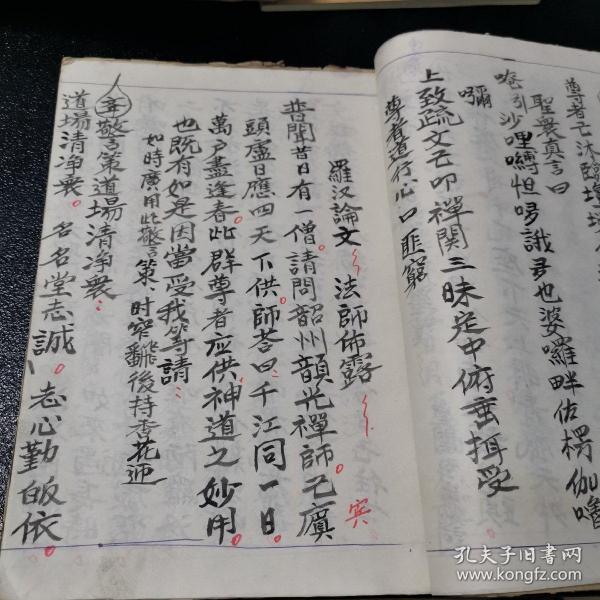 尊者已沐臨壇場
聖衆真言曰
唵引沙哩嚩怛哆誐多也婆羅畔佐楞伽嚕
嚩
上致疏文已叩禪関三昧定中俯垂揖受
尊者道行心口匪窮
羅汉論文 法師佈露 宾
普聞昔日有一僧請問韶州韻光禪師已廣
頭盧日應四天下供師荅曰千江同一日
萬戶盡逢春此群尊者应供神道之妙用
也既有如是因當受我等請
如時廣用此警言策時窄翻後持香花迎
警策道場清净衰
道場清净衰 名名堂志誠 志心勤皈依
孔夫子旧書网
www.kongfz.com